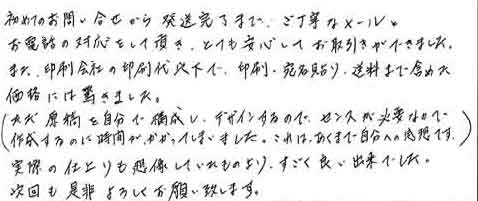 初めてのお問い合せから発送完了まで、ご丁寧なメールや
お電話の対応をして頂き、とても安心してお取引きができました。
また、印刷会社の印刷代以下で、印刷・宛名貼り・送料まで含めた
価格には驚きました。
(ただ原稿を自分で構成し、デザインするので、センスが必要なので
作成するのに時間がかかってしまいました。これは、あくまで自分への感想です。)
実際の仕上りも想像していたものより、すごく良い出来でした。
次回も是非よろしくお願い致します。